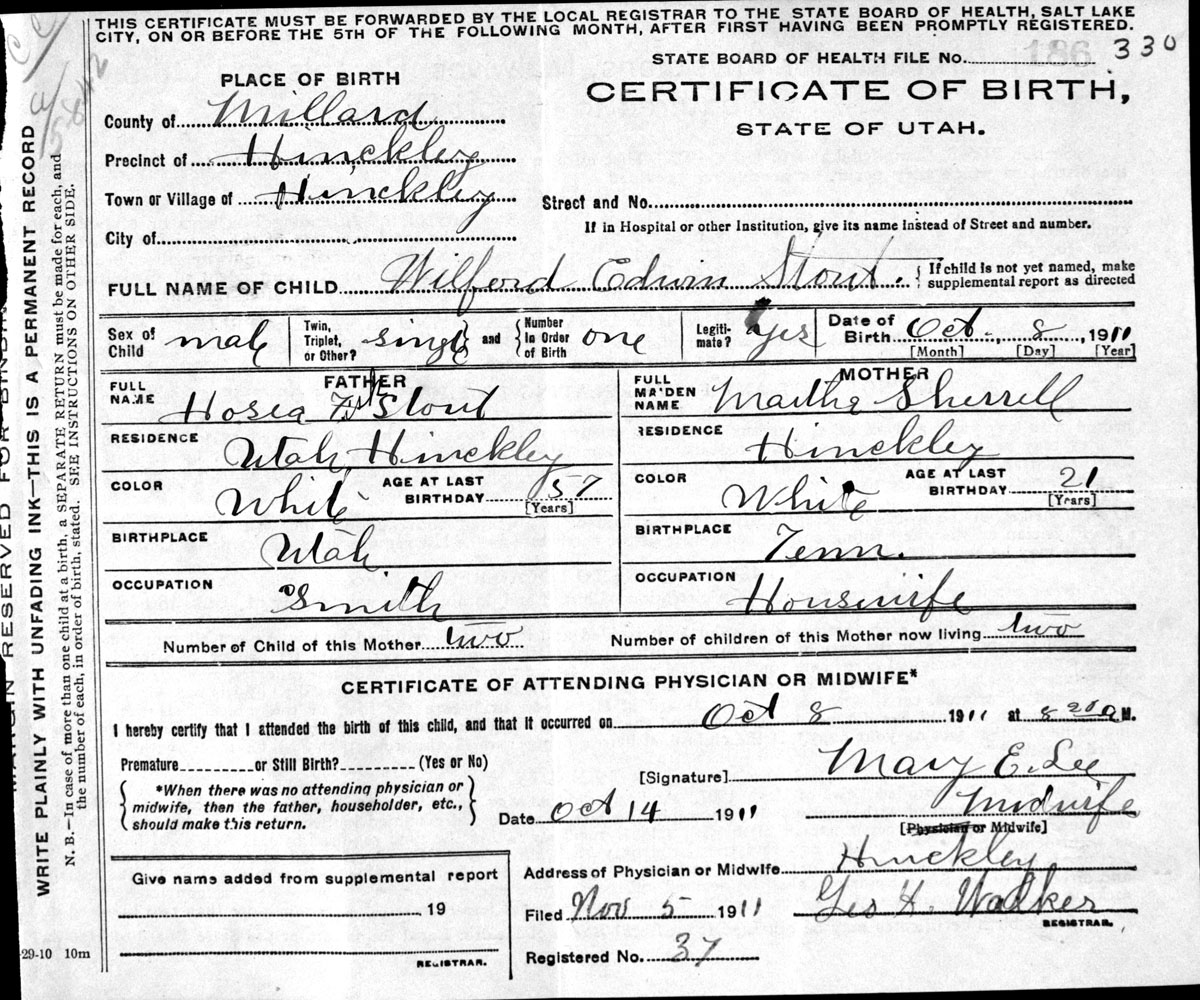 THIS CERTIFICATE MUST BE FORWARDED BY THE LOCAL REGISTRAR TO THE STATE BOARD OF HEALTH, SALT LAKE
CITY, ON OR BEFORE THE 5TH OF THE FOLLOWING MONTH, AFTER FIRST HAVING BEEN PROMPTLY REGISTERED.
STATE BOARD OF HEALTH FILE No. 186 330
PLACE OF BIRTH
CERTIFICATE OF BIRTH,
STATE OF UTAH.
County of Millard
Precinct of Hinckley
Town or Village of Hinckley
Street and No.
City of
If in Hospital or other Institution, give its name instead of Street and number.
FULL NAME OF CHILD Wilford Edwin Stout. { If child is not yet named, make
supplemental report as directed
Sex of Child male
Twin, Triplet, or Other? single and { Number in Order of Birth one
Legitimate? Yes
Date of Birth Oct., 8, 1911
[Month] [Day] [Year]
FATHER
FULL NAME Hosea F Stout
MOTHER
FULL MAIDEN NAME Martha Sherrell
RESIDENCE Utah Hinckley
RESIDENCE Hinckley
COLOR White AGE AT LAST BIRTHDAY 57 [Years]
COLOR White AGE AT LAST BIRTHDAY 21 [Years]
BIRTHPLACE Utah
BIRTHPLACE Tenn.
OCCUPATION Smith
OCCUPATION Housewife
Number of Child of this Mother two
Number of children of this Mother now living two
CERTIFICATE OF ATTENDING PHYSICIAN OR MIDWIFE*
I hereby certify that I attended the birth of this child, and that it occurred on Oct 8 1911 at 8 20 a M.
Premature or Still Birth? (Yes or No)
[Signature] Mary E. Lee
{ *When there was no attending physician or
midwife, then the father, householder, etc.,
should make this return. }
Date Oct 14 1911
Midwife
[Physician or Midwife]
Give name added from supplemental report
19
REGISTRAR.
Address of Physician or Midwife Hinckley
Filed Nov 5 1911 Geo Walker
REGISTRAR.
Registered No. 37
29-10 10m
WRITE PLAINLY WITH UNFADING INK—THIS IS A PERMANENT RECORD
N. B.—In case of more than one child at a birth, a SEPARATE RETURN must be made for each, and
the number of each, in order of birth, stated. SEE INSTRUCTIONS ON OTHER SIDE.
MARGIN RESERVED FOR BINDING